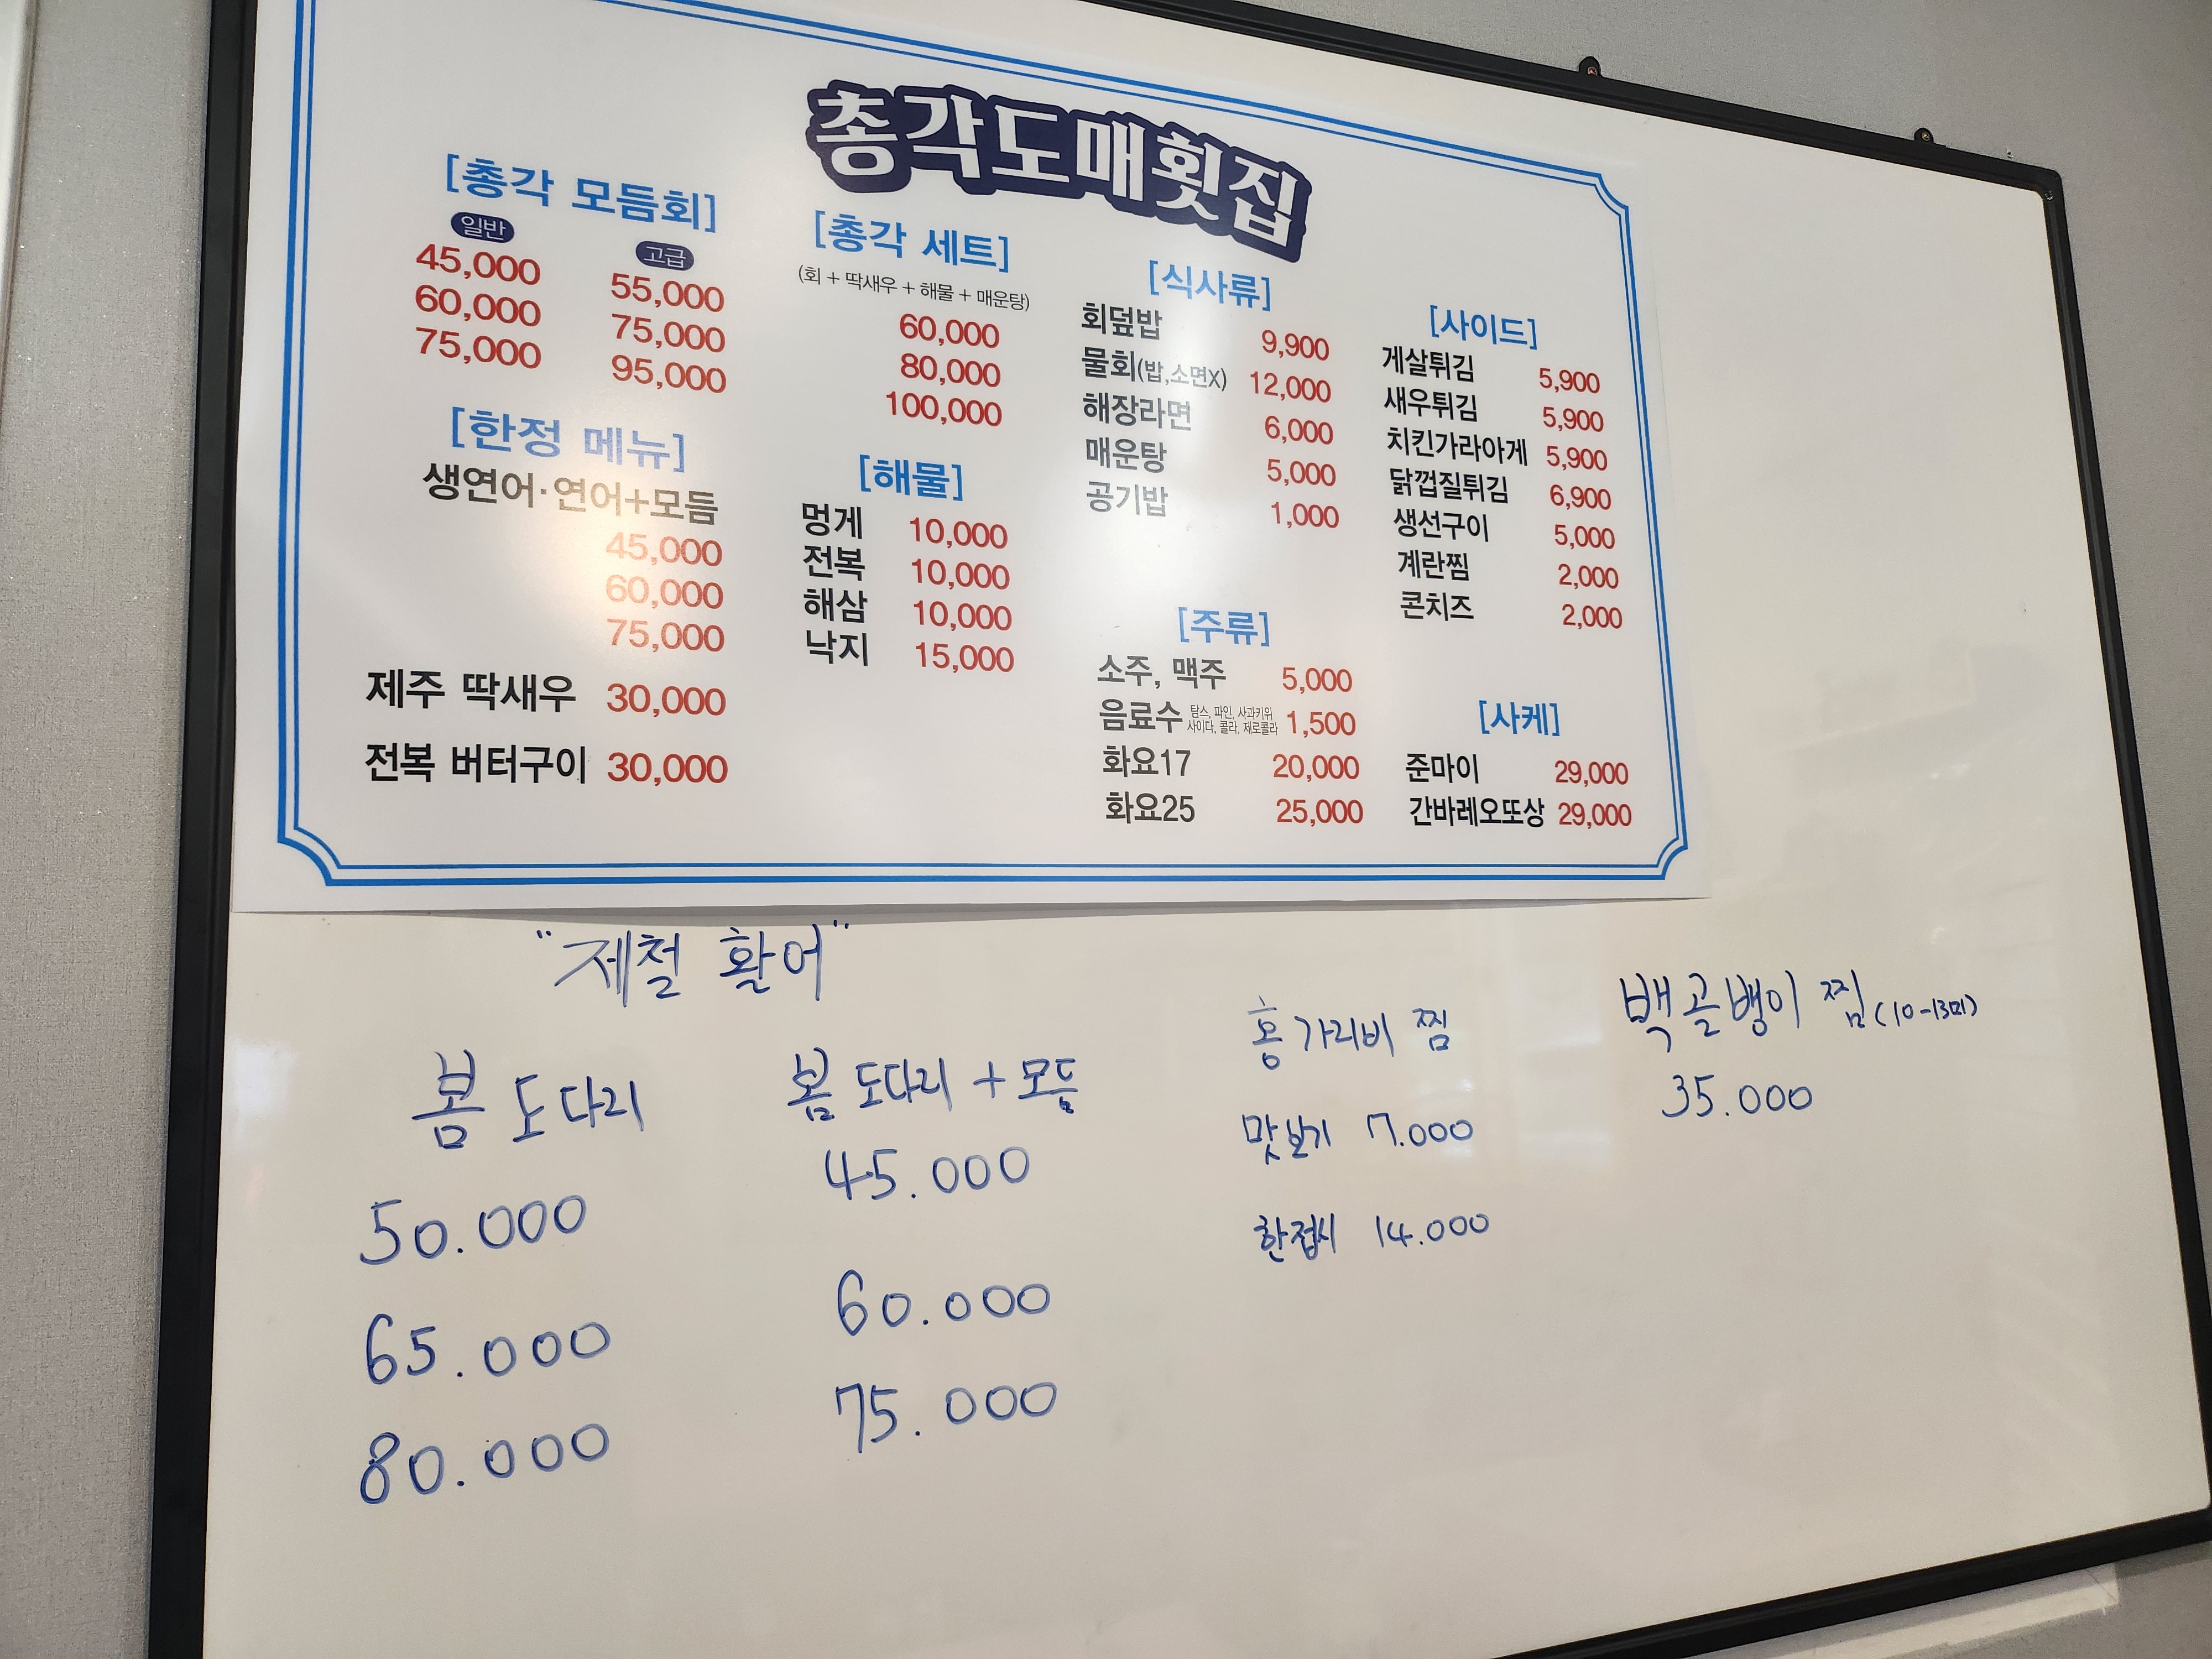 총각도매횟집
[총각 모듬회]
일반 고급
45,000 55,000
60,000 75,000
75,000 95,000
[한정 메뉴]
생연어·연어+모듬
45,000
60,000
75,000
제주 딱새우 30,000
전복 버터구이 30,000
[총각 세트]
(회 + 딱새우 + 해물 + 매운탕)
60,000
80,000
100,000
[해물]
멍게 10,000
전복 10,000
해삼 10,000
낙지 15,000
[식사류]
회덮밥 9,900
물회(밥,소면X) 12,000
해장라면 6,000
매운탕 5,000
공기밥 1,000
[주류]
소주, 맥주 5,000
음료수 탐스, 파인, 사과키위 1,500
사이다, 콜라, 제로콜라
화요17 20,000
화요25 25,000
[사이드]
게살튀김 5,900
새우튀김 5,900
치킨가라아게 5,900
닭껍질튀김 6,900
생선구이 5,000
계란찜 2,000
콘치즈 2,000
[사케]
준마이 29,000
간바레오또상 29,000
"제철 활어"
봄 도다리
50.000
65.000
80.000
봄 도다리 + 모듬
45.000
60.000
75.000
홍가리비 찜
맛보기 7.000
한접시 14.000
백골뱅이 찜 (10-13미)
35.000